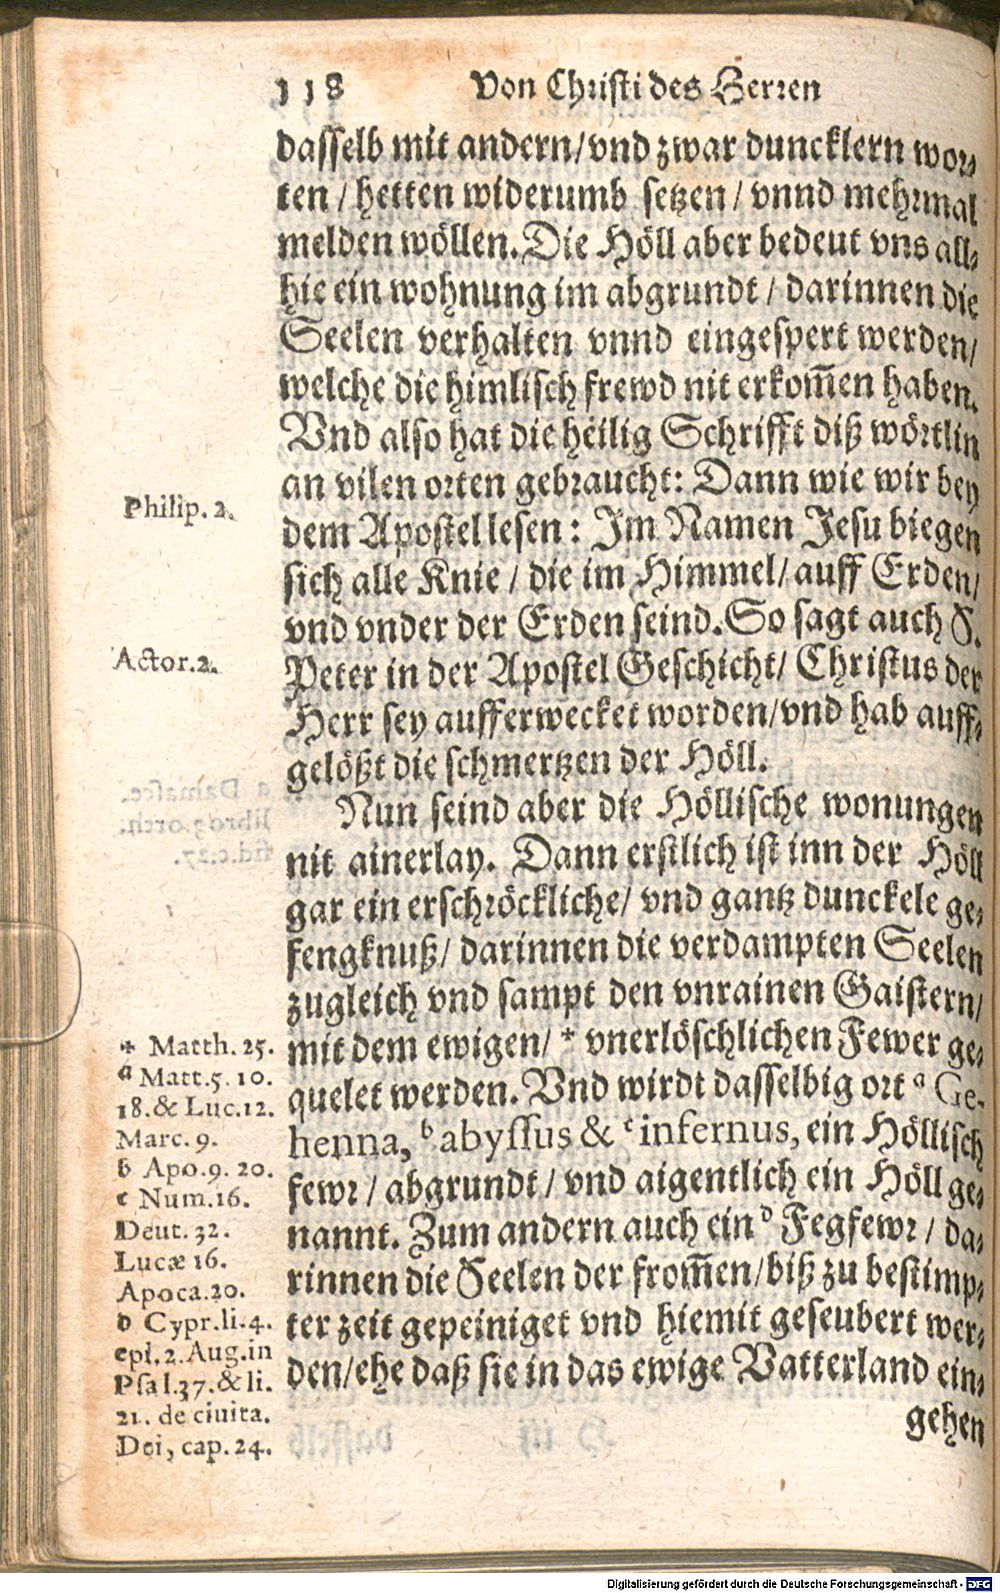 118 Von Christi des Herren
dasselb mit andern/vnd zwar duncklern wor-
ten / hetten widerumb setzen / vnnd mehrmal
melden wöllen. Die Höll aber bedeut vns all-
hie ein wohnung im abgrundt / darinnen die
Seelen verhalten vnnd eingespert werden/
welche die himlisch frewd nit erkom̄en haben.
Vnd also hat die heilig Schrifft diß wörtlin
an vilen orten gebraucht: Dann wie wir bey
Philip. 2.
dem Apostel lesen: Im Namen Jesu biegen
sich alle Knie / die im Himmel/ auff Erden/
vnd vnder der Erden seind. So sagt auch S.
Actor. 2.
Peter in der Apostel Geschicht/ Christus der
Herr sey aufferwecket worden/vnd hab auff-
gelößt die schmertzen der Höll.
Nun seind aber die Höllische wonungen
nit ainerlay. Dann erstlich ist inn der Höll
gar ein erschröckliche/ vnd gantz dunckele ge-
fengknuß/ darinnen die verdampten Seelen
zugleich vnd sampt den vnrainen Gaistern/
mit dem ewigen/ * vnerlöschlichen Fewer ge-
quelet werden. Vnd wirdt dasselbig ort a Ge-
henna, b abyssus & c infernus, ein Höllisch
fewr / abgrundt / vnd aigentlich ein Höll ge-
nannt. Zum andern auch ein d Fegfewr / da-
rinnen die Seelen der from̄en/biß zu bestimp-
ter zeit gepeiniget vnd hiemit geseubert wer-
den/ehe daß sie in das ewige Vatterland ein-
gehen
* Matth. 25.
a Matt. 5. 10.
18. & Luc. 12.
Marc. 9.
b Apo. 9. 20.
c Num. 16.
Deut. 32.
Lucæ 16.
Apoca. 20.
d Cypr. li. 4.
epi. 2. Aug. in
Psal. 37. & li.
21. de ciuita.
Dei, cap. 24.
Digitalisierung gefördert durch die Deutsche Forschungsgemeinschaft - DFG